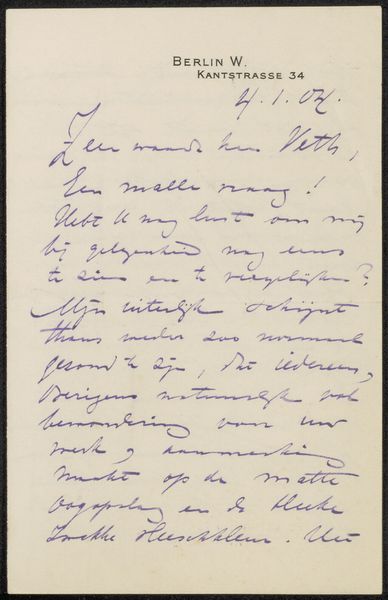 BERLIN W.
KANTSTRASSE 34
4.1.04.
Zeer waarde heer Veth,
Een malle vraag!
Hebt U nog lust om mij
bij gelegenheid nog eens
te zien en te vergelijken?
Mijn uiterlijk schijnt
thans weder zoo normaal
gezond te zijn, dat iedereen,
overigens natuurlijk vol
bewondering voor uw
werk, aanmerking
maakt op de matte
oogopslag en de bleeke
zwakke vleeschkleur. Uit